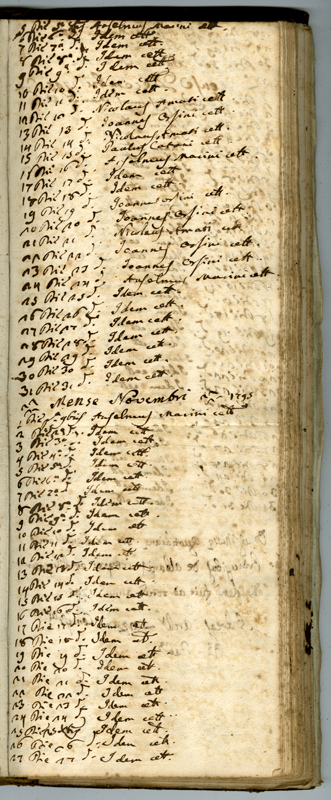 5 Die 5 Anselmus Marini cett
Idem cett
7 Die 7 Idem cett
8 Die 8 Idem cett
9 Die 9 Idem cett
10 Die 10 Idem cett
11 Die 11 Idem cett
12 Die 12 Nicolaus Amati cett
13 Die 13 Joannes Orsini cett.
14 Die 14 Nicolaus Amati cett.
15 Die 15 Paulus cett
16 Die 16 Anselmus Marini cett.
17 Die 17 Idem cett
18 Die 18 Idem cett
19 Die 19 Joannes Orsini cett
20 Die 20 Joannes Orsini cett.
21 Die 21 Nicolaus Amati cett
22 Die 22 Joannes Orsini cett.
23 Die 23 Joannes Orsini cett.
24 Die 24 Anselmus Marini cett
25 Die 25 Idem cett.
26 Die 26 Idem cett.
27 Die 27 Idem cett
28 Die 28 Idem cett.
29 Die 29 Idem cett
30 Die 30 Idem cett.
31 Die 31 Idem cett.
Mense Novembri 1795
Anselmus Marini cett
2 Die 2 Idem cett.
3 Die 3 Idem cett.
4 Die 4 Idem cett.
5 Die 5 Idem cett
6 Die 6 Idem cett.
7 Die 7 Idem cett
8 Die 8 Idem cett.
9 Die 9 Idem cett.
10 Die 10 Idem cett
11 Die 11 Idem cett.
12 Die 12 Idem cett
13 Die 13 Idem cett.
14 Die 14 Idem cett.
15 Die 15 Idem cett.
16 Die 16 Idem cett
17 Die 17 Idem cett.
18 Die 18 Idem cett.
19 Die 19 Idem cett
20 Die 20 Idem cett.
21 Die 21 Idem cett
22 Die 22 Idem cett
23 Die 23 Idem cett
24 Die 24 Idem cett
25 Die 25 Idem cett
26 Die 26 Idem cett.
27 Die 27 Idem cett.